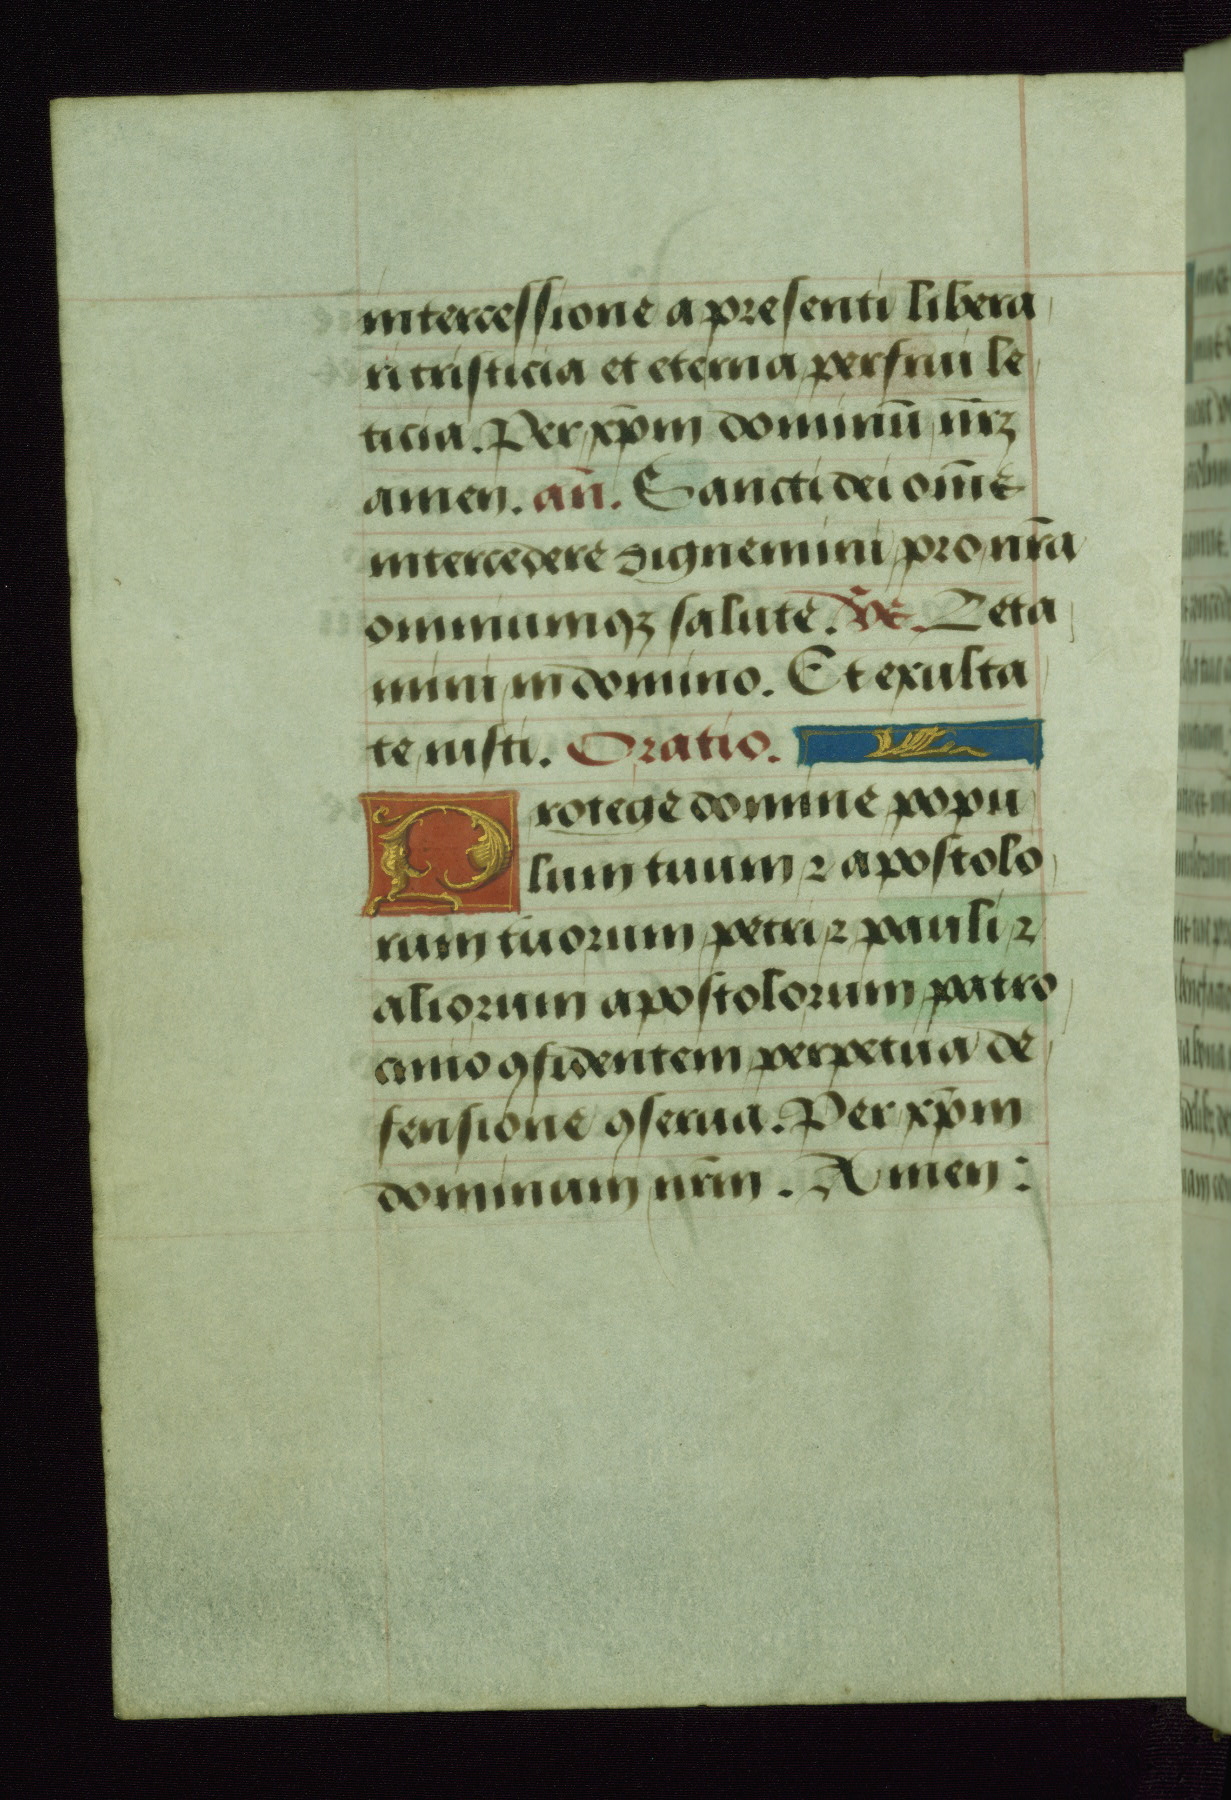 intercessione a presenti libera
ri tristicia et eterna perfrui le
ticia. Per xp̄m dominū nr̄ꝫ
amen. an̄. Sancti dei om̄e
intercedere dignemini pro nr̄a
omniumqꝫ salute. Leta
mini in domino. Et exulta
te iusti. Oratio.
Protege domine popu
lum tuum ⁊ apostolo
rum tuorum petri ⁊ pauli ⁊
aliorum apostolorum patro
cinio ꝯfidentem perpetua de
fensione ꝯserua. Per xp̄m
dominum nr̄m. Amen: